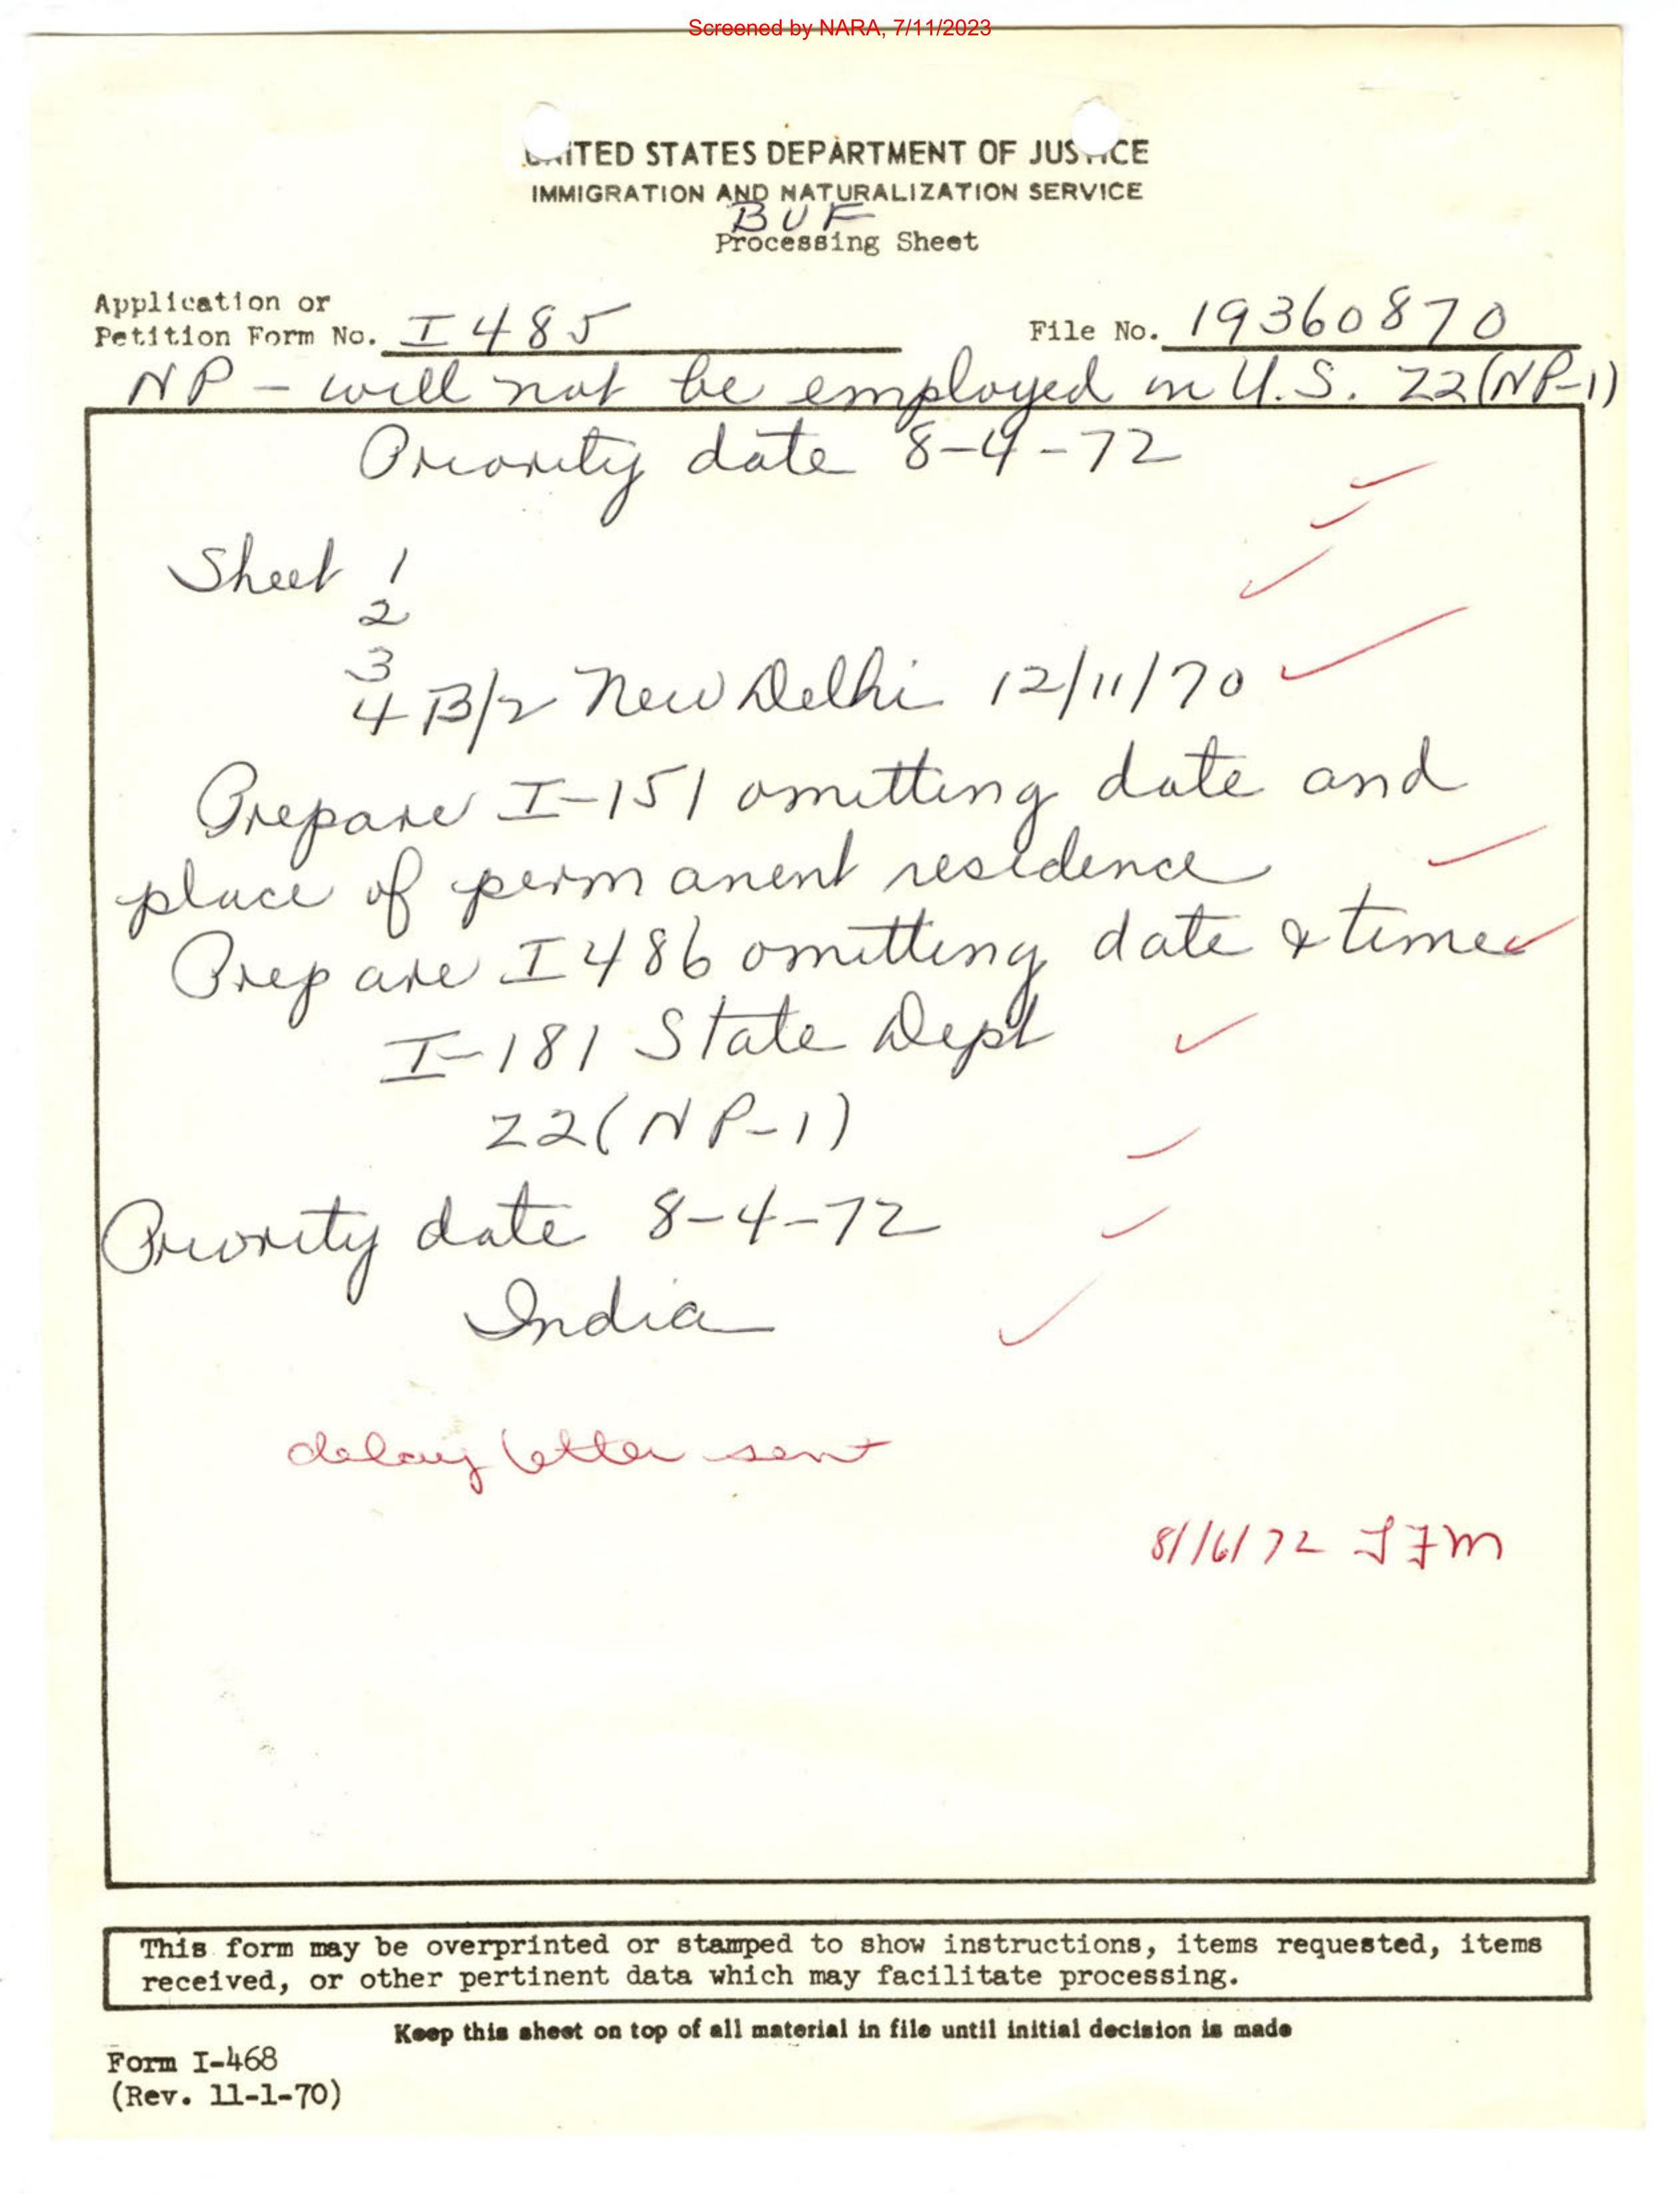 Screened by NARA, 7/11/2023
UNITED STATES DEPARTMENT OF JUSTICE
IMMIGRATION AND NATURALIZATION SERVICE
BUF
Processing Sheet
Application or
Petition Form No. I 485 File No. 19360870
NP - will not be employed in U.S. Z2(NP-1)
Priority date 8-4-72
Sheet 1
2
3
4 B/2 New Delhi 12/11/70
Prepare I-151 omitting date and
place of permanent residence
Prepare I 486 omitting date & time
I-181 State Dept
Z2(NP-1)
Priority date 8-4-72
India
delay letter sent
8/16/72 JFM
This form may be overprinted or stamped to show instructions, items requested, items
received, or other pertinent data which may facilitate processing.
Keep this sheet on top of all material in file until initial decision is made
Form I-468
(Rev. 11-1-70)